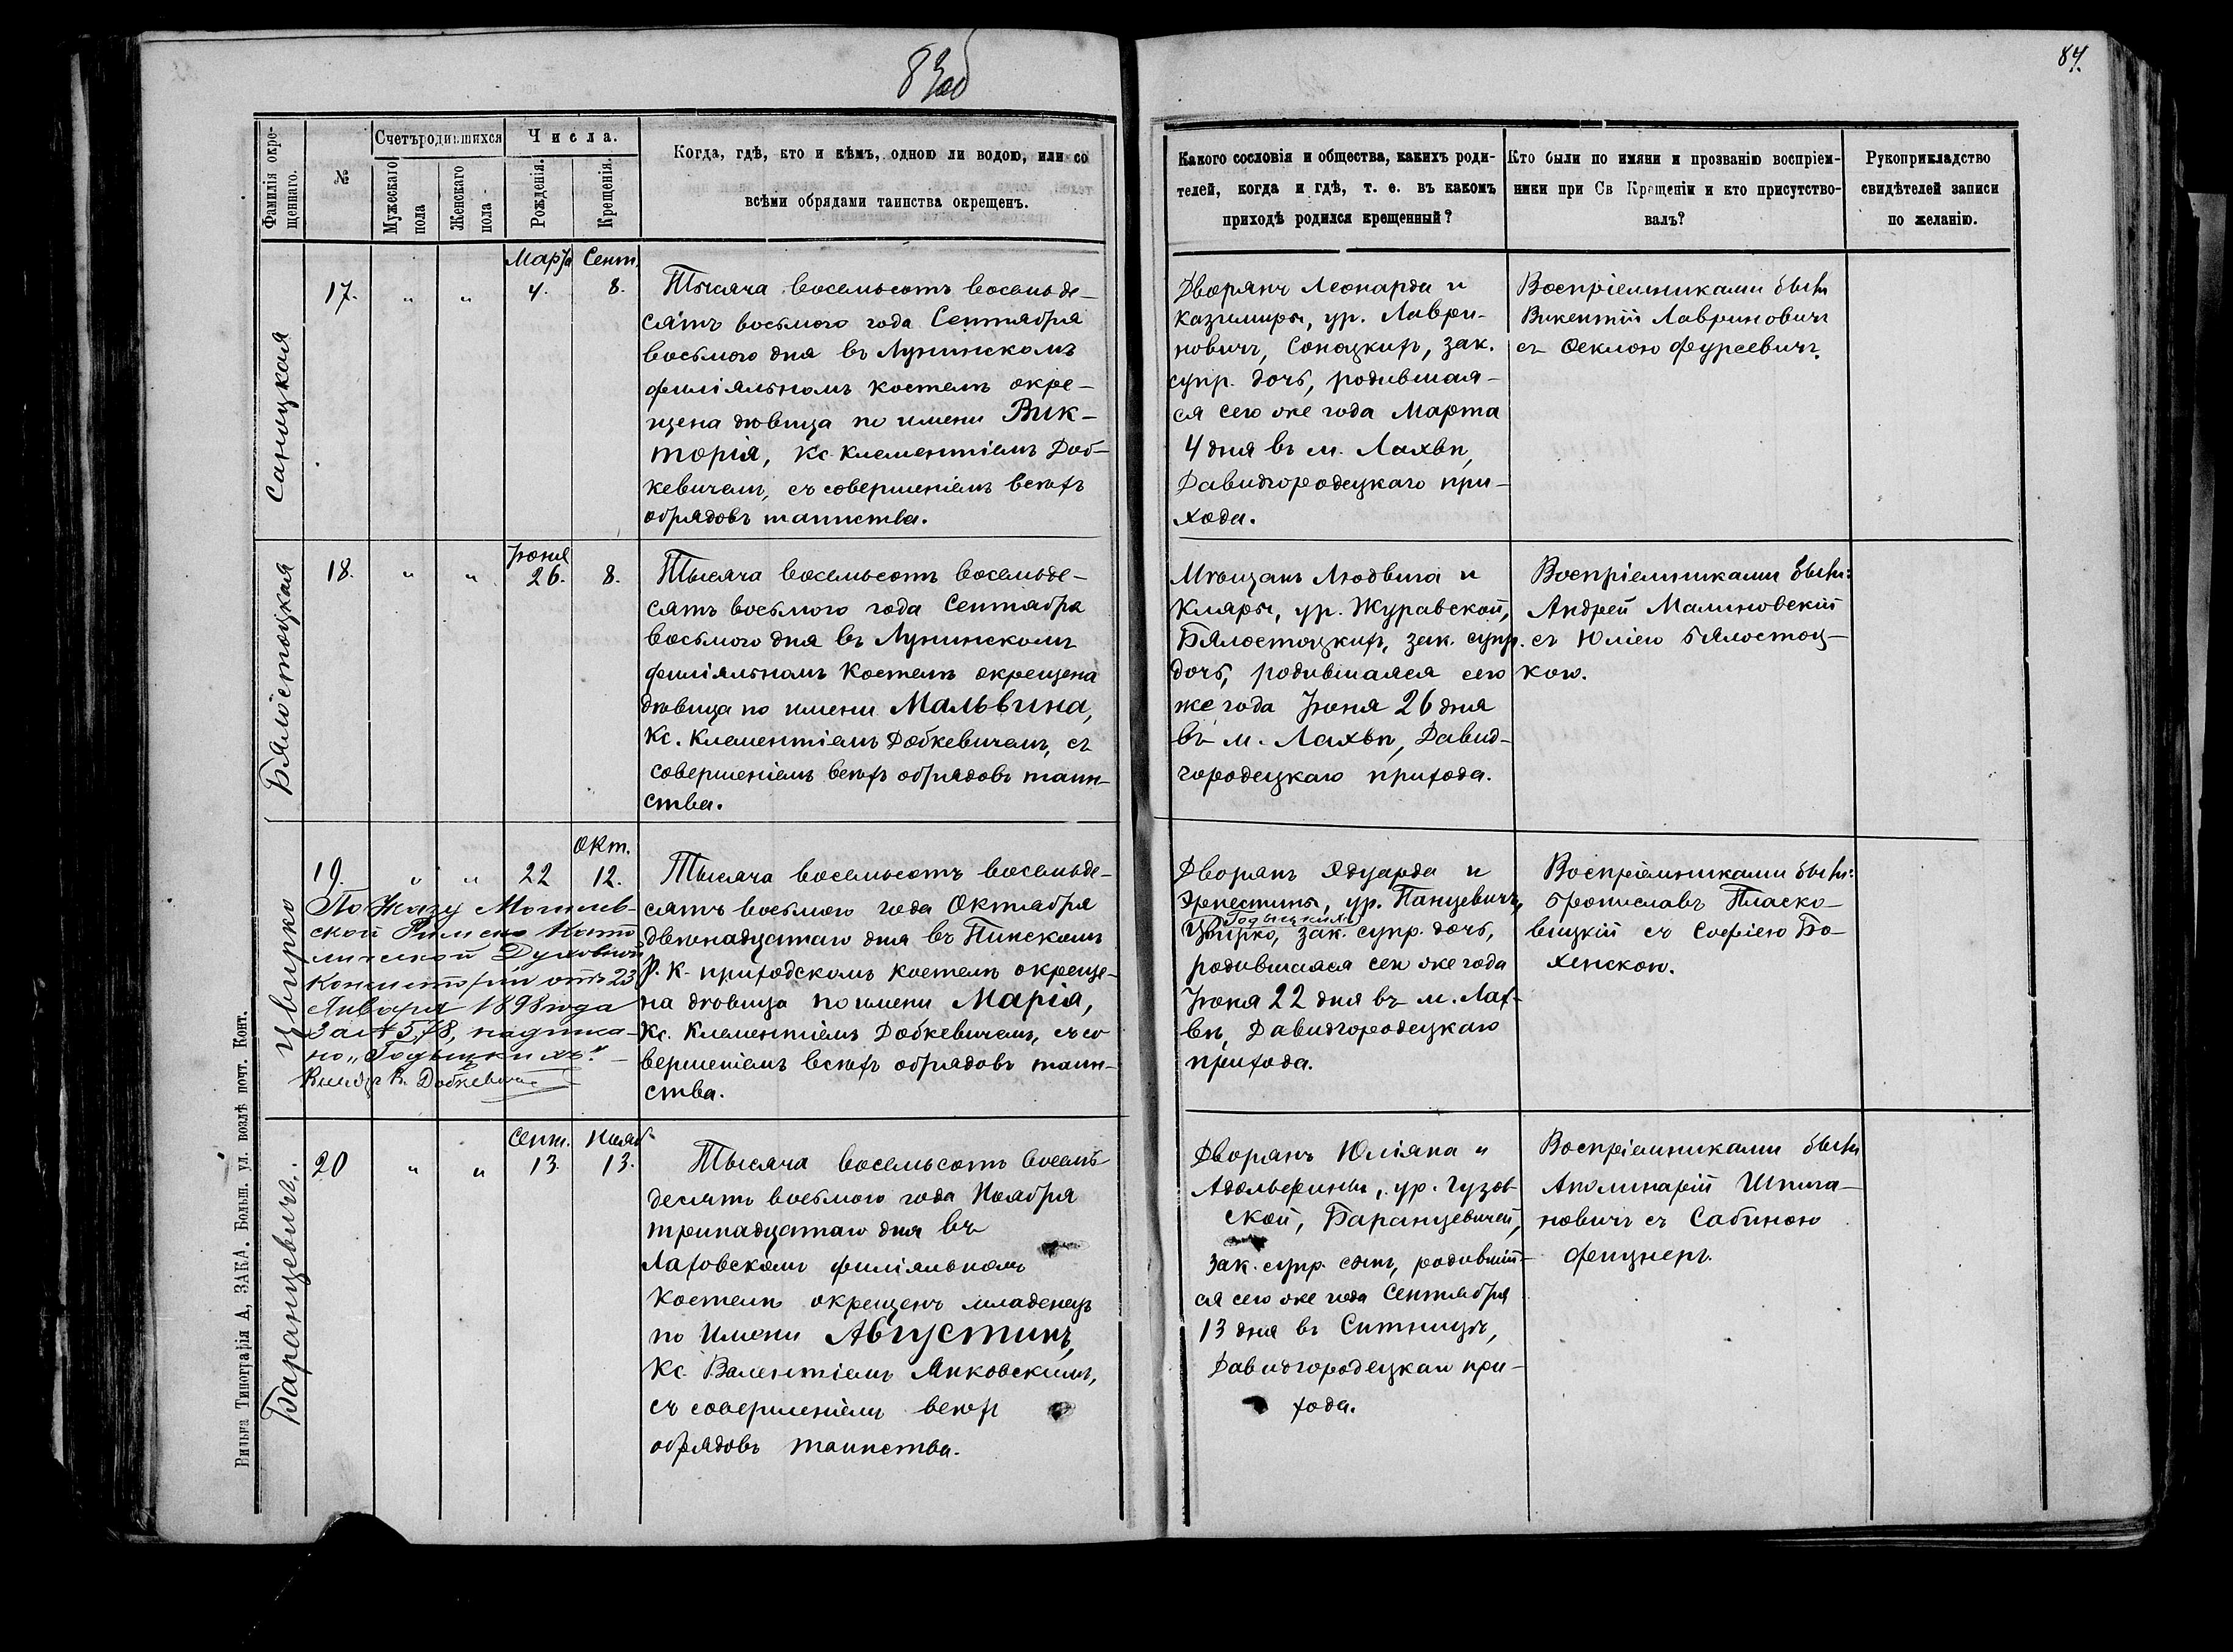 83об
84.
Фамилія окре-
щеннаго.
№
Счетъ родившихся
Мужескаго
пола
Женскаго
пола
Числа.
Рожденія.
Крещенія.
Когда, гдѣ, кто и кѣмъ, одною ли водою, или со
всѣми обрядами таинства окрещенъ.
Какого сословія и общества, какихъ роди-
телей, когда и гдѣ, т. е. въ какомъ
приходѣ родился крещенный?
Кто были по имяни и прозванію воспріем-
ники при Св Крещеніи и кто присутство-
валъ?
Рукоприкладство
свидѣтелей записи
по желанію.
Саноцкая
17.
„ „
Марта
4.
Сент.
8.
Тысяча восемьсотъ восемьде-
сятъ восьмого года Сентября
восьмого дня въ Лунинскомъ
филіяльномъ костелѣ окре-
щена дѣвица по имени Вик-
торія, Кс. Клементіемъ Доб-
кевичемъ, съ совершеніемъ всѣхъ
обрядовъ таинства.
Дворянъ Леонарда и
Казимиры, ур. Лаври-
новичъ, Саноцкихъ, зак.
супр. дочь, родившая-
ся сего же года Марта
4 дня въ м. Лахвѣ,
Давидгородецкаго при-
хода.
Воспріемниками были
Викентій Лавриновичъ
съ Ѳеклою Фурсевичъ.
Бялостоцкая
18.
„ „
Іюня
26.
8.
Тысяча восемьсотъ восемьде-
сятъ восьмого года Сентября
восьмого дня въ Лунинскомъ
филіяльномъ костелѣ окрещена
дѣвица по имени Мальвина,
Кс. Клементіемъ Добкевичемъ, съ
совершеніемъ всѣхъ обрядовъ таин-
ства.
Мѣщанъ Людвига и
Клары, ур. Журавской,
Бялостоцкихъ, зак. супр.
дочь, родившаяся сего
же года Іюня 26 дня
въ м. Лахвѣ, Давид-
городецкаго прихода.
Воспріемниками были:
Андрей Малиновскій
съ Юліею Бялостоц-
кою.
Цвирко
19.
„ „
22
Окт.
12.
По Указу Могилев-
ской Римско Като
лической Духовной
Консисторіи отъ 23
Января 1898 года
За № 578, надписа-
но „Годыцкихъ“
Ксендзъ К. Добкевичъ
Тысяча восемьсотъ восемьде-
сятъ восьмого года Октября
двѣнадцатаго дня въ Пинскомъ
Р. К. приходскомъ костелѣ окреще-
на дѣвица по имени Марія,
Кс. Клементіемъ Добкевичемъ, съ со
вершеніемъ всѣхъ обрядовъ таин-
ства.
Дворянъ Эдуарда и
Эрнестины, ур. Панцевичъ,
Годыцкихъ
Цвирко, зак. супр. дочь,
родившаяся сего же года
Іюня 22 дня въ м. Лах-
вѣ, Давидгородецкаго
прихода.
Воспріемниками были:
Брониславъ Пласко-
вицкій съ Софіею Бо-
хенскою.
Баранцевичъ.
20
„ „
Сент.
13.
Нояб.
13.
Тысяча восемьсотъ восемь
десятъ восьмого года Ноября
тринадцатаго дня въ
Лаховскомъ филіяльномъ
костелѣ окрещенъ младенецъ
по имени Августинъ,
Кс. Валентіемъ Янковскимъ,
съ совершеніемъ всѣхъ
обрядовъ таинства.
Дворянъ Юліяна и
Адольфины, ур. Гузов
ской, Баранцевичей,
зак. супр. сынъ, родивший-
ся сего же года Сентября
13 дня въ Ситницѣ,
Давидгородецкаго при-
хода.
Воспріемниками были
Аполинарій Шпига-
новичъ съ Сабиною
Фецнеръ.
Вильна Типографія А, ЗАКА. Больш. ул. возлѣ почт. Конт.